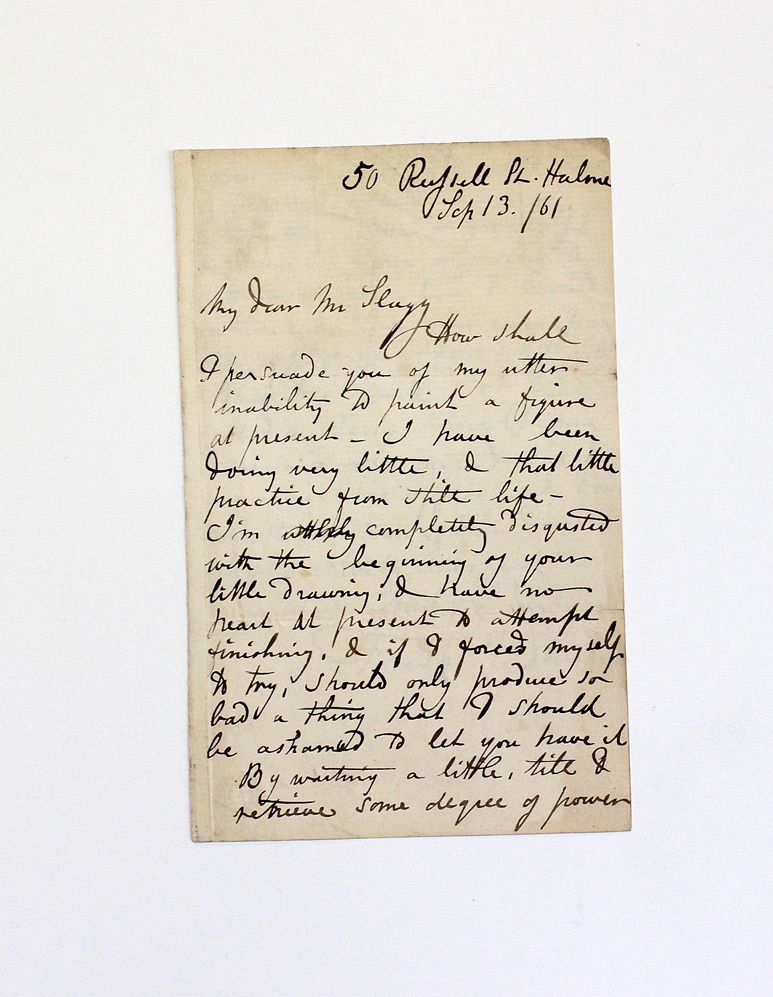 50 Russell St. Hulme
Sep 13. /61
My dear Mr Slagg
How shall
I persuade you of my utter
inability to paint a figure
at present - I have been
doing very little, & that little
practice from still life -
I'm utterly completely disgusted
with the beginning of your
little drawing; & have no
heart at present to attempt
finishing, & if I forced myself
to try, should only produce so
bad a thing that I should
be ashamed to let you have it
By waiting a little, till I
retrieve some degree of power